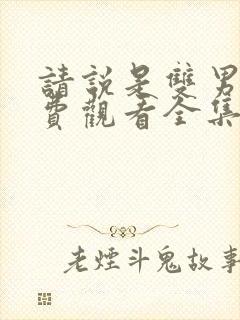 請說是雙男
費觀看全集
老煙斗鬼故事